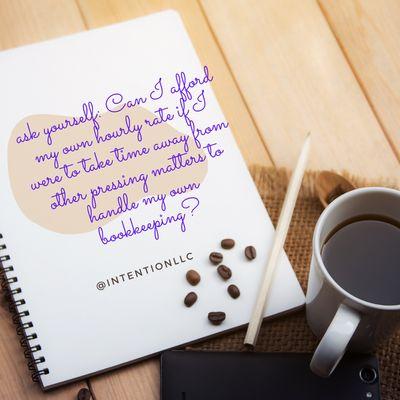 ask yourself: Can I afford
my own hourly rate if I
were to take time away from
other pressing matters to
handle my own
bookkeeping?
@INTENTIONLLC